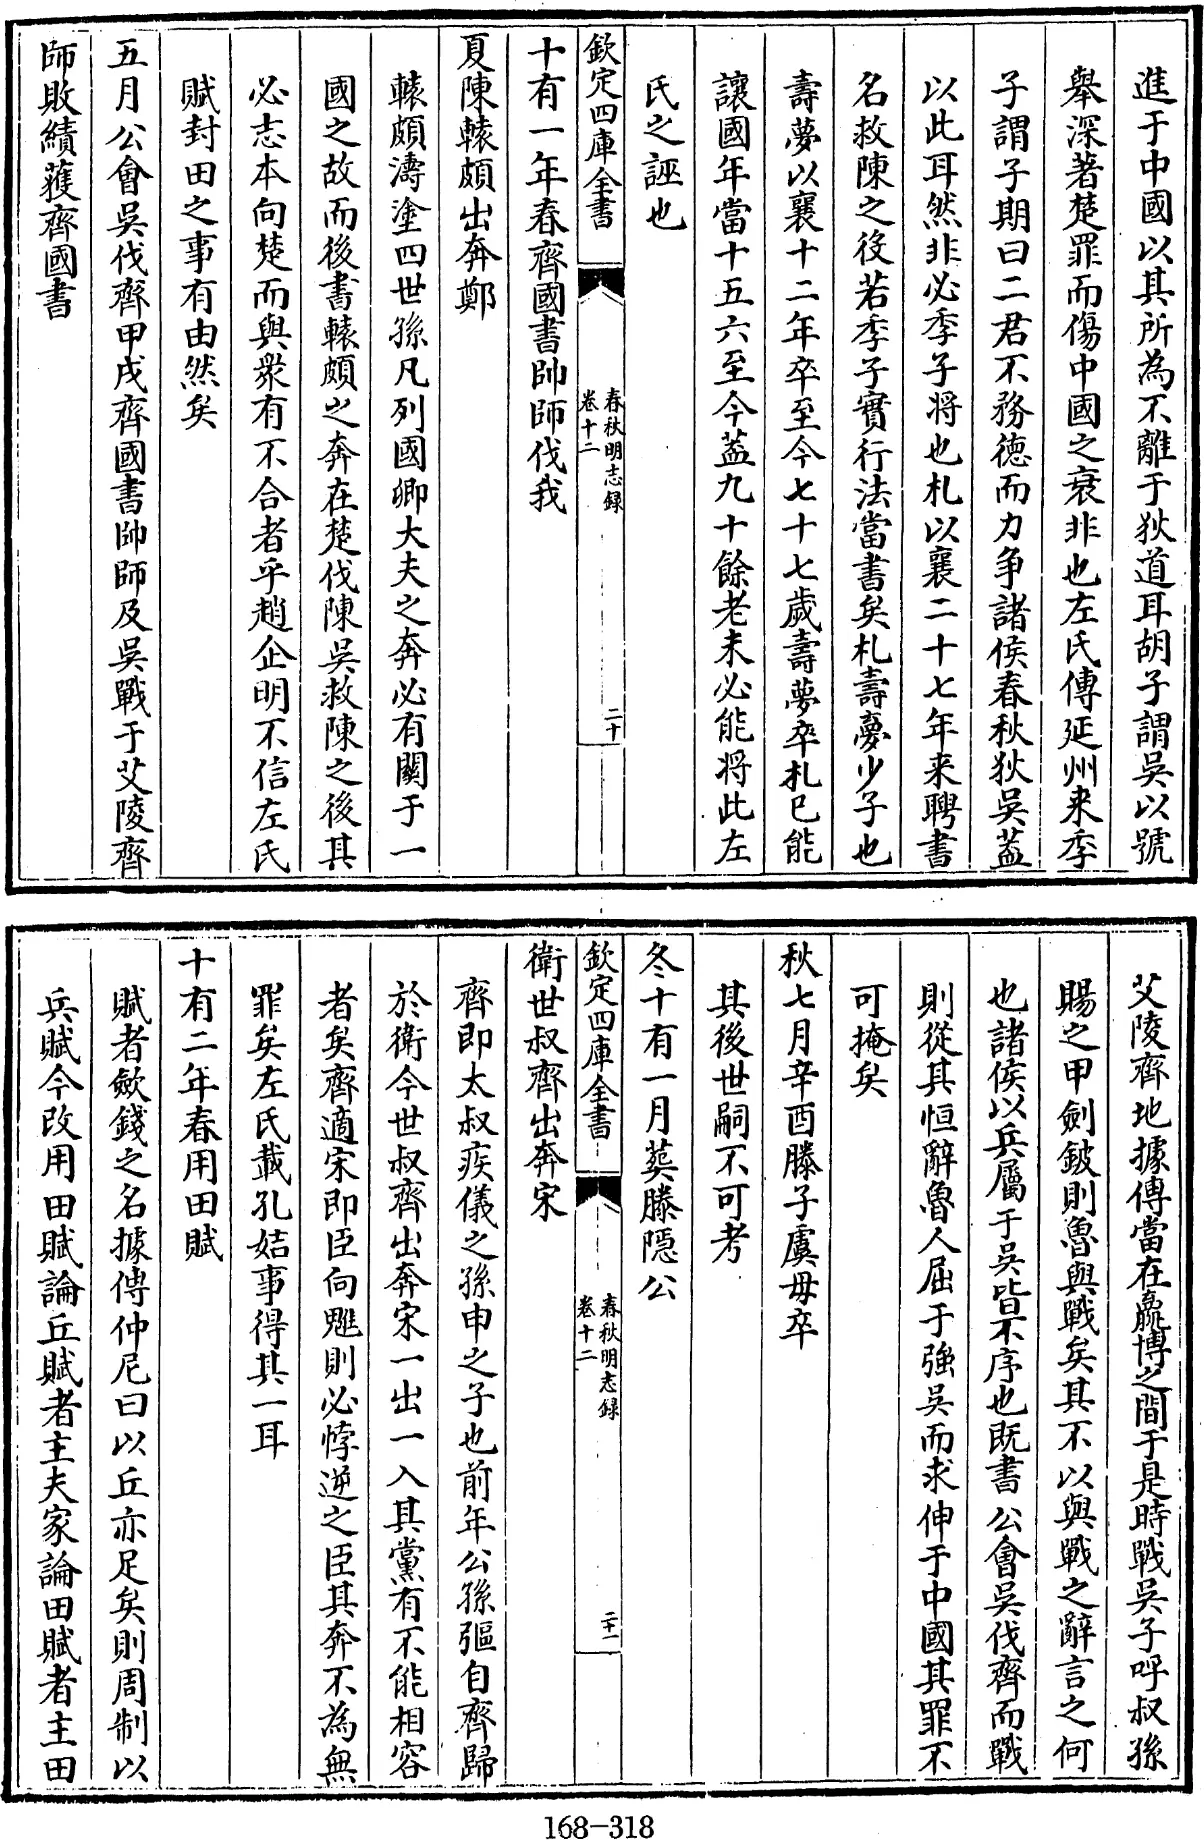 進于中國以其所為不離于狄道耳胡子謂吳以號
舉深著楚罪而傷中國之衰非也左氏傳延州来季
子謂子期曰二君不務德而力争諸侯春秋狄吳葢
以此耳然非必季子将也札以襄二十七年来聘書
名救陳之役若季子實行法當書矣札壽夢少子也
壽夢以襄十二年卒至今七十七歲壽夢卒札已能
讓國年當十五六至今葢九十餘老未必能将此左
氏之誣也
欽定四庫全書
春秋明志録
卷十二
二十
十有一年春齊國書帥師伐我
夏陳轅頗出奔鄭
轅頗濤塗四世孫凡列國卿大夫之奔必有關于一
國之故而後書轅頗之奔在楚伐陳吳救陳之後其
必志本向楚而與衆有不合者乎趙企明不信左氏
賦封田之事有由然矣
五月公會吳伐齊甲戌齊國書帥師及吳戰于艾陵齊
師敗績獲齊國書
艾陵齊地據傳當在嬴博之間于是時戰吳子呼叔孫
賜之甲劍鈹則魯與戰矣其不以與戰之辭言之何
也諸侯以兵屬于吳皆不序也既書公會吳伐齊而戰
則從其恒辭魯人屈于強吳而求伸于中國其罪不
可掩矣
秋七月辛酉滕子虞毋卒
其後世嗣不可考
冬十有一月葬滕隠公
欽定四庫全書
春秋明志録
卷十二
二十一
衛世叔齊出奔宋
齊即太叔疾儀之孫申之子也前年公孫彄自齊歸
於衛今世叔齊出奔宋一出一入其黨有不能相容
者矣齊適宋即臣向魋則必悖逆之臣其奔不為無
罪矣左氏載孔姞事得其一耳
十有二年春用田賦
賦者歛錢之名據傳仲尼曰以丘亦足矣則周制以
兵賦今改用田賦論丘賦者主夫家論田賦者主田
168-318